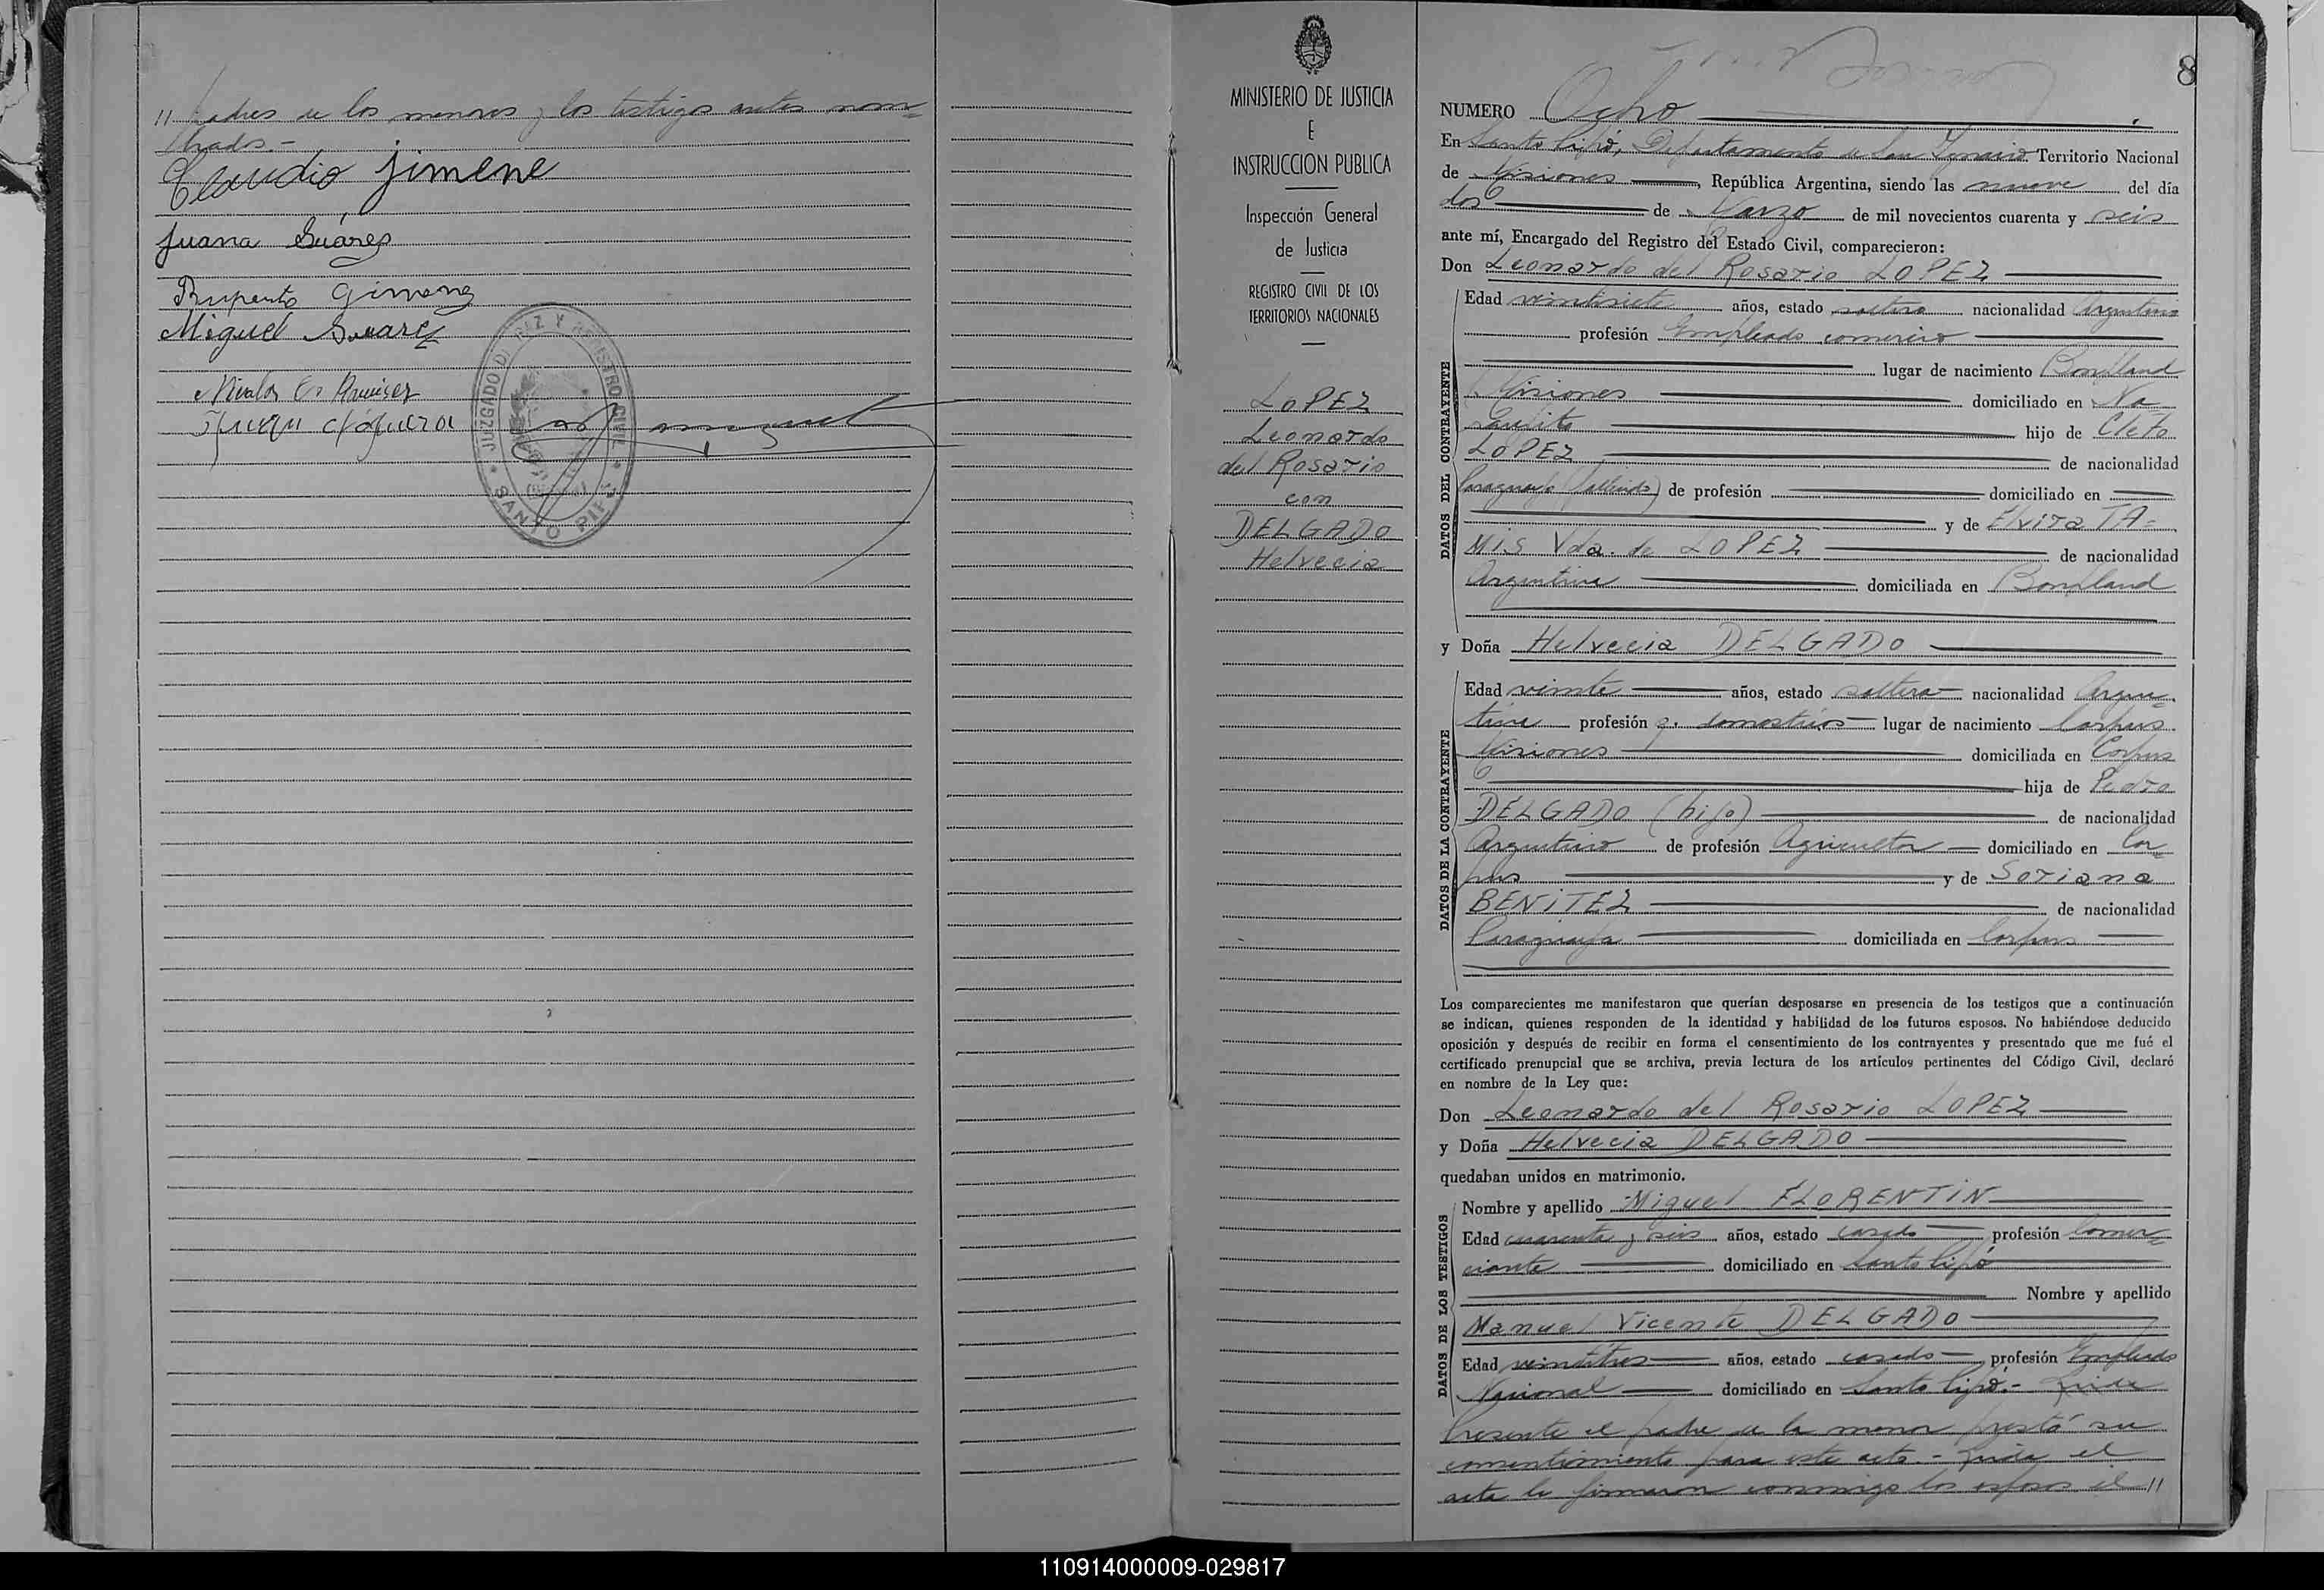 // padres de los menores y los testigos antes nom=
brados.-
Claudio Jimene
Juana Suárez
Ruperto Gimenez
Miguel Suarez
JUZGADO DE PAZ Y REGISTRO CIVIL
SANTO PIPÓ
MINISTERIO DE JUSTICIA
E
INSTRUCCION PUBLICA
Inspección General
de Justicia
REGISTRO CIVIL DE LOS
TERRITORIOS NACIONALES
LOPEZ
Leonardo
del Rosario
con
DELGADO
Helvecia
8
NUMERO Ocho
En Santo Pipó, Departamento de San Ignacio Territorio Nacional
de Misiones, República Argentina, siendo las nueve del día
dos de Marzo de mil novecientos cuarenta y seis
ante mí, Encargado del Registro del Estado Civil, comparecieron:
Don Leonardo del Rosario LOPEZ
Edad veintisiete años, estado soltero nacionalidad Argentina
profesión Empleado comercio
lugar de nacimiento Bonpland
Misiones domiciliado en Ña
hijo de Cleto
LOPEZ de nacionalidad
Paraguayo (fallecido) de profesión domiciliado en
y de Elvira TA-
MIS Vda. de LOPEZ de nacionalidad
Argentina domiciliada en Bonpland
y Doña Helvecia DELGADO
Edad veinte años, estado soltera nacionalidad Argen=
tina profesión q. domésticos lugar de nacimiento Corpus
Misiones domiciliada en Corpus
hija de Pedro
DELGADO (hijo) de nacionalidad
Argentino de profesión Agricultor domiciliado en Cor=
pus y de Soriana
BENITEZ de nacionalidad
Paraguaya domiciliada en Corpus
Los comparecientes me manifestaron que querían desposarse en presencia de los testigos que a continuación
se indican, quienes responden de la identidad y habilidad de los futuros esposos. No habiéndose deducido
oposición y después de recibir en forma el consentimiento de los contrayentes y presentado que me fué el
certificado prenupcial que se archiva, previa lectura de los artículos pertinentes del Código Civil, declaré
en nombre de la Ley que:
Don Leonardo del Rosario LOPEZ
y Doña Helvecia DELGADO
quedaban unidos en matrimonio.
Nombre y apellido Miguel FLORENTIN
Edad cuarenta y seis años, estado casado profesión Comer=
ciante domiciliado en Santo Pipó
Nombre y apellido
Manuel Vicente DELGADO
Edad veintitres años, estado casado profesión Empleado
Nacional domiciliado en Santo Pipó.-
Presente el padre de la menor prestó su
consentimiento para este acto.- Leída el
acta la firmaron conmigo los esposos el //
DATOS DEL CONTRAYENTE
DATOS DE LA CONTRAYENTE
DATOS DE LOS TESTIGOS
110914000009-029817